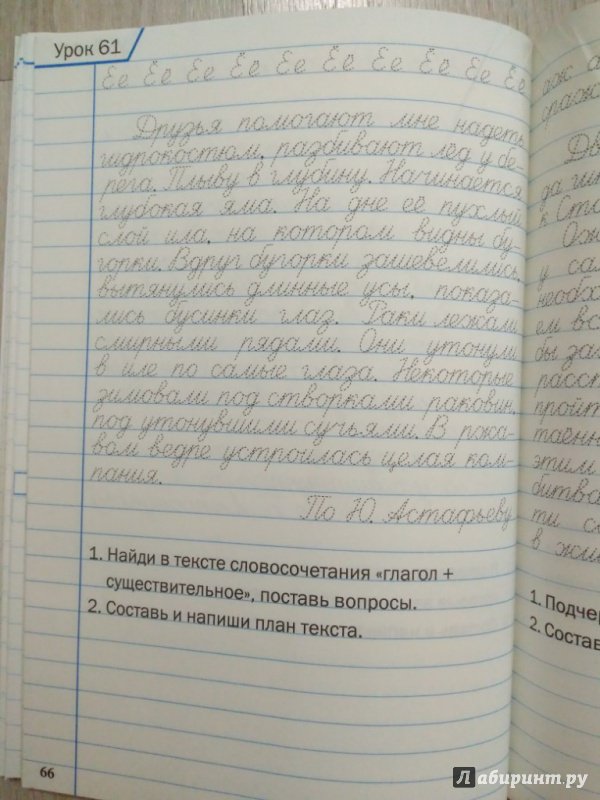 Урок 61
Ее Ёё Ее Ёё Ее Ёё Ее Ёё Ее Ёё
Друзья помогают мне надеть
гидрокостюм, разбивают лед у бе-
рега. Плыву в глубину. Начинается
глубокая яма. На дне её пухлый
слой ила, на котором видны бу-
горки. Вдруг бугорки зашевелились,
вытянулись длинные усы, показа-
лись бусинки глаз. Раки лежали
смирными рядами. Они утонули
в иле по самые глаза. Некоторые
зимовали под створками раковин,
под утонувшими сучьями. В ржа-
вом ведре устроилась целая ком-
пания.
По Ю. Астафьеву
1. Найди в тексте словосочетания «глагол +
существительное», поставь вопросы.
2. Составь и напиши план текста.
66
аж а
сраж
Дв
да ши
к Ста
Ож
у сал
необх
ем вс
бы за
расст
пройт
таённ
этим
битва
ти сл
в жи
1. Подчер
2. Состав
Лабиринт.ру